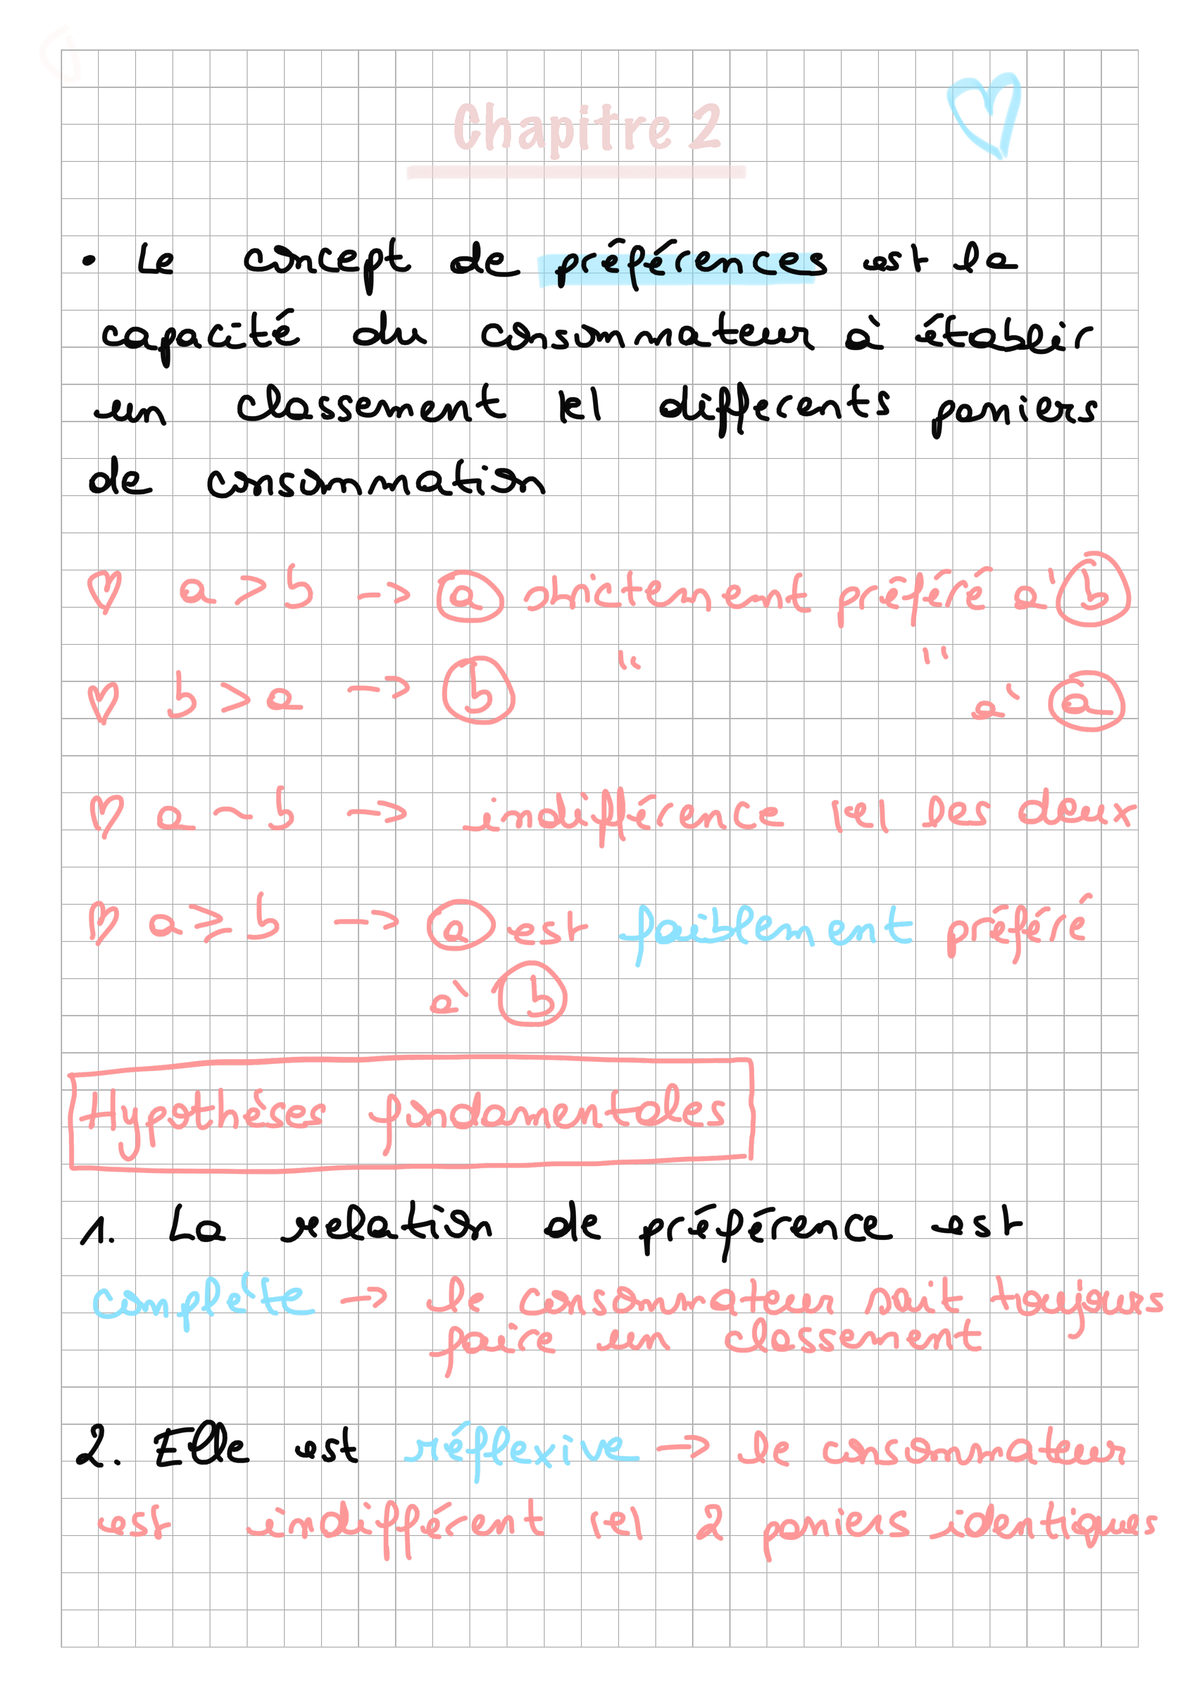 Chapitre 2
• Le concept de préférences est la
capacité du consommateur à établir
un classement |e| differents paniers
de consommation
♡ a > b -> a strictement préféré à b
♡ b > a -> b " " à a
♡ a ~ b -> indifférence |e| les deux
♡ a ⩾ b -> a est faiblement préféré
à b
Hypothèses fondamentales
1. La relation de préférence est
complète -> le consommateur sait toujours
faire un classement
2. Elle est réflexive -> le consommateur
est indifférent |e| 2 paniers identiques